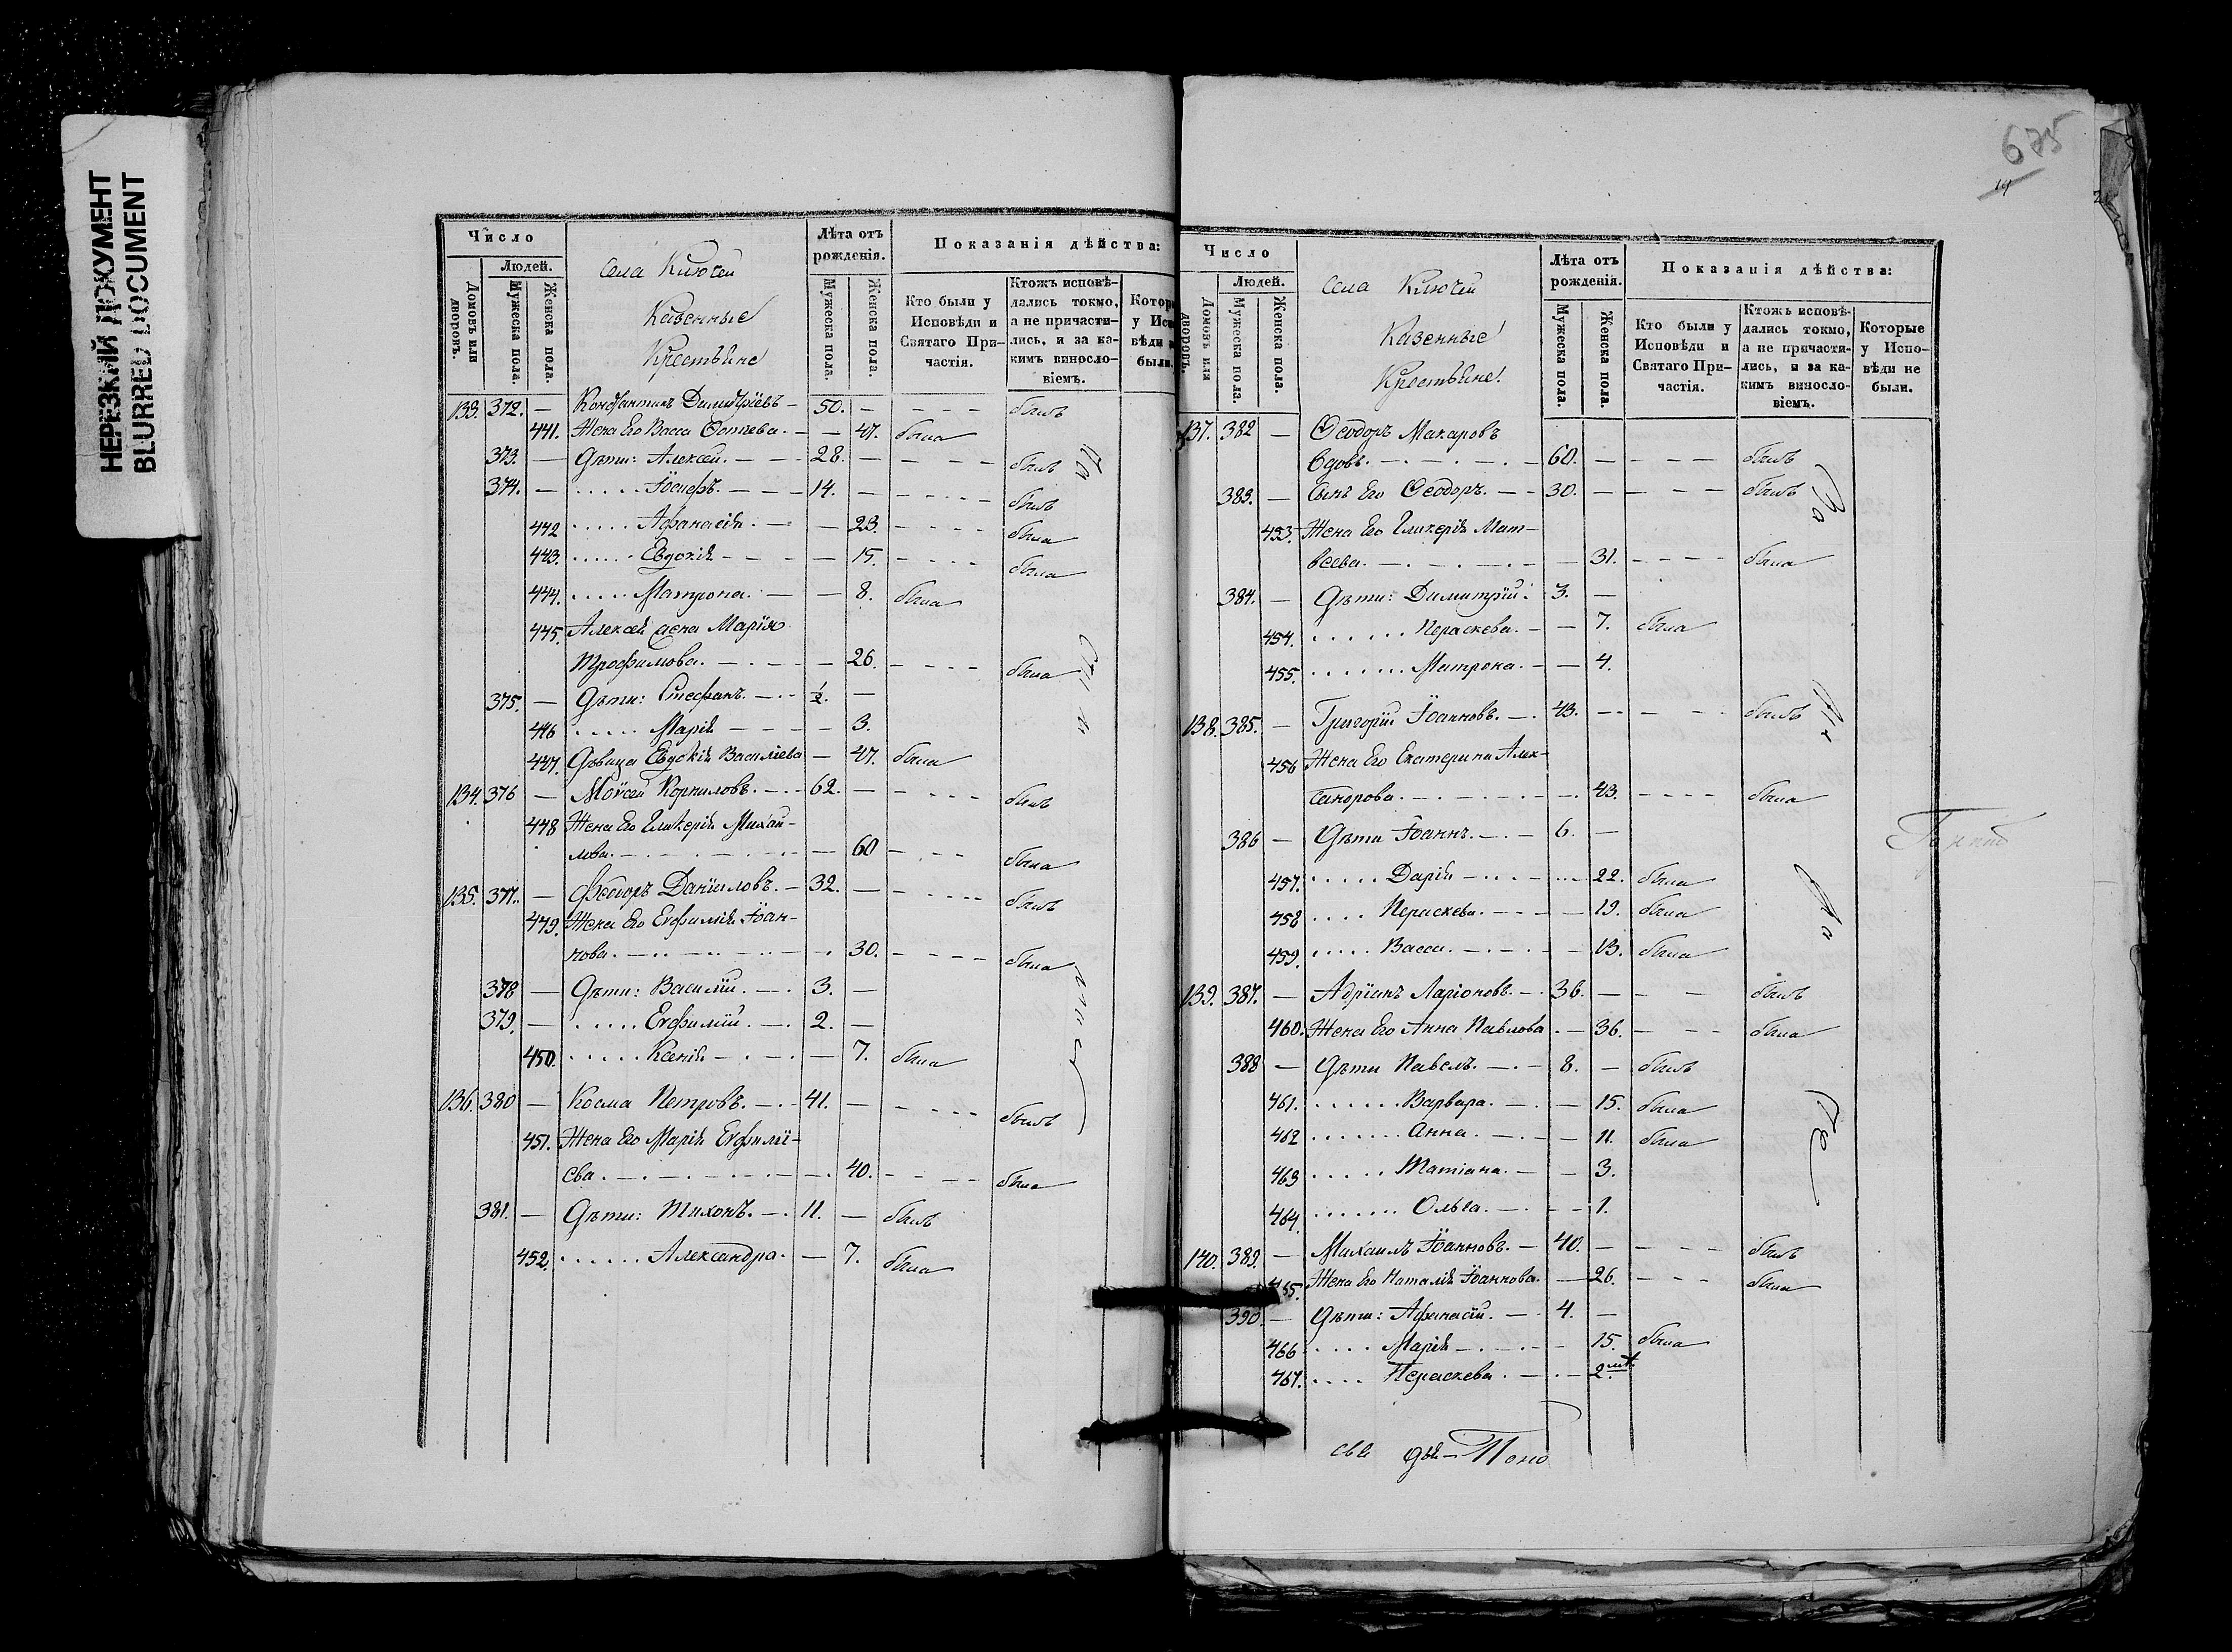 НЕРЕЗКИЙ ДОКУМЕНТ
BLURRED DOCUMENT
Число
Людей.
Домовъ или дворовъ.
Мужеска пола.
Женска пола.
Села Ключей
Казенные
Крестьяне
Лѣта отъ рожденія.
Мужеска пола.
Женска пола.
Показанія дѣйства:
Кто были у Исповѣди и Святаго Причастія.
Ктожъ исповѣдались токмо, а не причастились, и за какимъ винословіемъ.
133. 372. — Константинъ Димитріевъ — 50. — — — — былъ
441. Жена Его Васса — — 47. была
373. — Дѣти: Алексѣй. — — — 28. — — — — былъ
374. — ..... Іосифъ. — — — 14. — — — — былъ
442 ..... Афанасія. — — 23. — — — — была
443. ..... Евдокія — — — — 15. — — — — была
444. ..... Матрона. — — 8. была
445. Алексѣя жена Марія
Трофимова. — . — — — 26. — — — — была
375. — Дѣти: Стефанъ. — . — ½. —
446 ..... Марія — — — — — 3.
447. Дѣвица Евдокія Василіева — 47. была
134. 376 — Моѵсей Корниловъ. — . — 62. — — — — былъ
448 Жена Его Гликерія Михай-
лова. — . — . — — 60 — . — — была
135. 377. — Ѳеодоръ Даніиловъ. — 32. — — — — былъ
449. Жена Его Евфимія Іоан-
нова. — . . — . . — — . 30. — — — — была
378 — Дѣти: Василій. — . 3. —
379. — ..... Евфимій. — . 2. —
450. ..... Ксенія — . — . — 7. была
136. 380 — Косма Петровъ. — . — 41. — — — — былъ
451. Жена Его Марія Евфимі-
ева. — . — . — . — — . 40. — — — — была
381. — Дѣти: Тихонъ. — . 11. — былъ
452. ...... Александра. — 7. была
675
Число
Людей.
Домовъ или дворовъ.
Мужеска пола.
Женска пола.
Села Ключей
Казенные
Крестьяне.
Лѣта отъ рожденія.
Мужеска пола.
Женска пола.
Показанія дѣйства:
Кто были у Исповѣди и Святаго Причастія.
Ктожъ исповѣдались токмо, а не причастились, и за какимъ винословіемъ.
Которые у Исповѣди не были.
137. 382 — Ѳеодоръ Макаровъ
Вдовъ. — . — . — . — 60. — — — — былъ
383. — Сынъ Его Ѳеодоръ. — — 30. — — — — былъ
453. Жена Его Гликерія Мат-
веева. — . — . — . — — 31. — — — — была
384. — Дѣти: Димитрій. 3. —
454. ...... Параскева. — — 7. была
455. ....... Матрона. — — 4.
138. 385. — Григорій Іоанновъ. — . 43. — — — — былъ
456 Жена Его Екатерина Алек-
сандрова. — . — . — . — . 43. — — — — была
386 — Дѣти Іоаннъ. — . — 6. —
457. ..... Дарія — . . — . ... 22. была
458 .... Параскева. — — — — 19. была
459. ..... Васса. — . — . — — 13. была
139. 387. — Адріанъ Ларіоновъ. — . 36. — — — былъ
460. Жена Его Анна Павлова . — 36. — — — была
388 — Дѣти Павелъ. — . — 8. — былъ
461. ...... Варвара. — . — 15. была
462 ....... Анна. — . — — 11. была
463 ...... Татіана. — — 3.
464. ....... Ольга. — . — — 1.
140. 389. — Михаилъ Іоанновъ. — 40. — — — — былъ
465. Жена Его Наталія Іоаннова. — 26. — — — была
390. — Дѣти: Афанасій. — . 4. —
466 .... Марія — . — . — — 15. была
467. .... Параскева. — . — 2